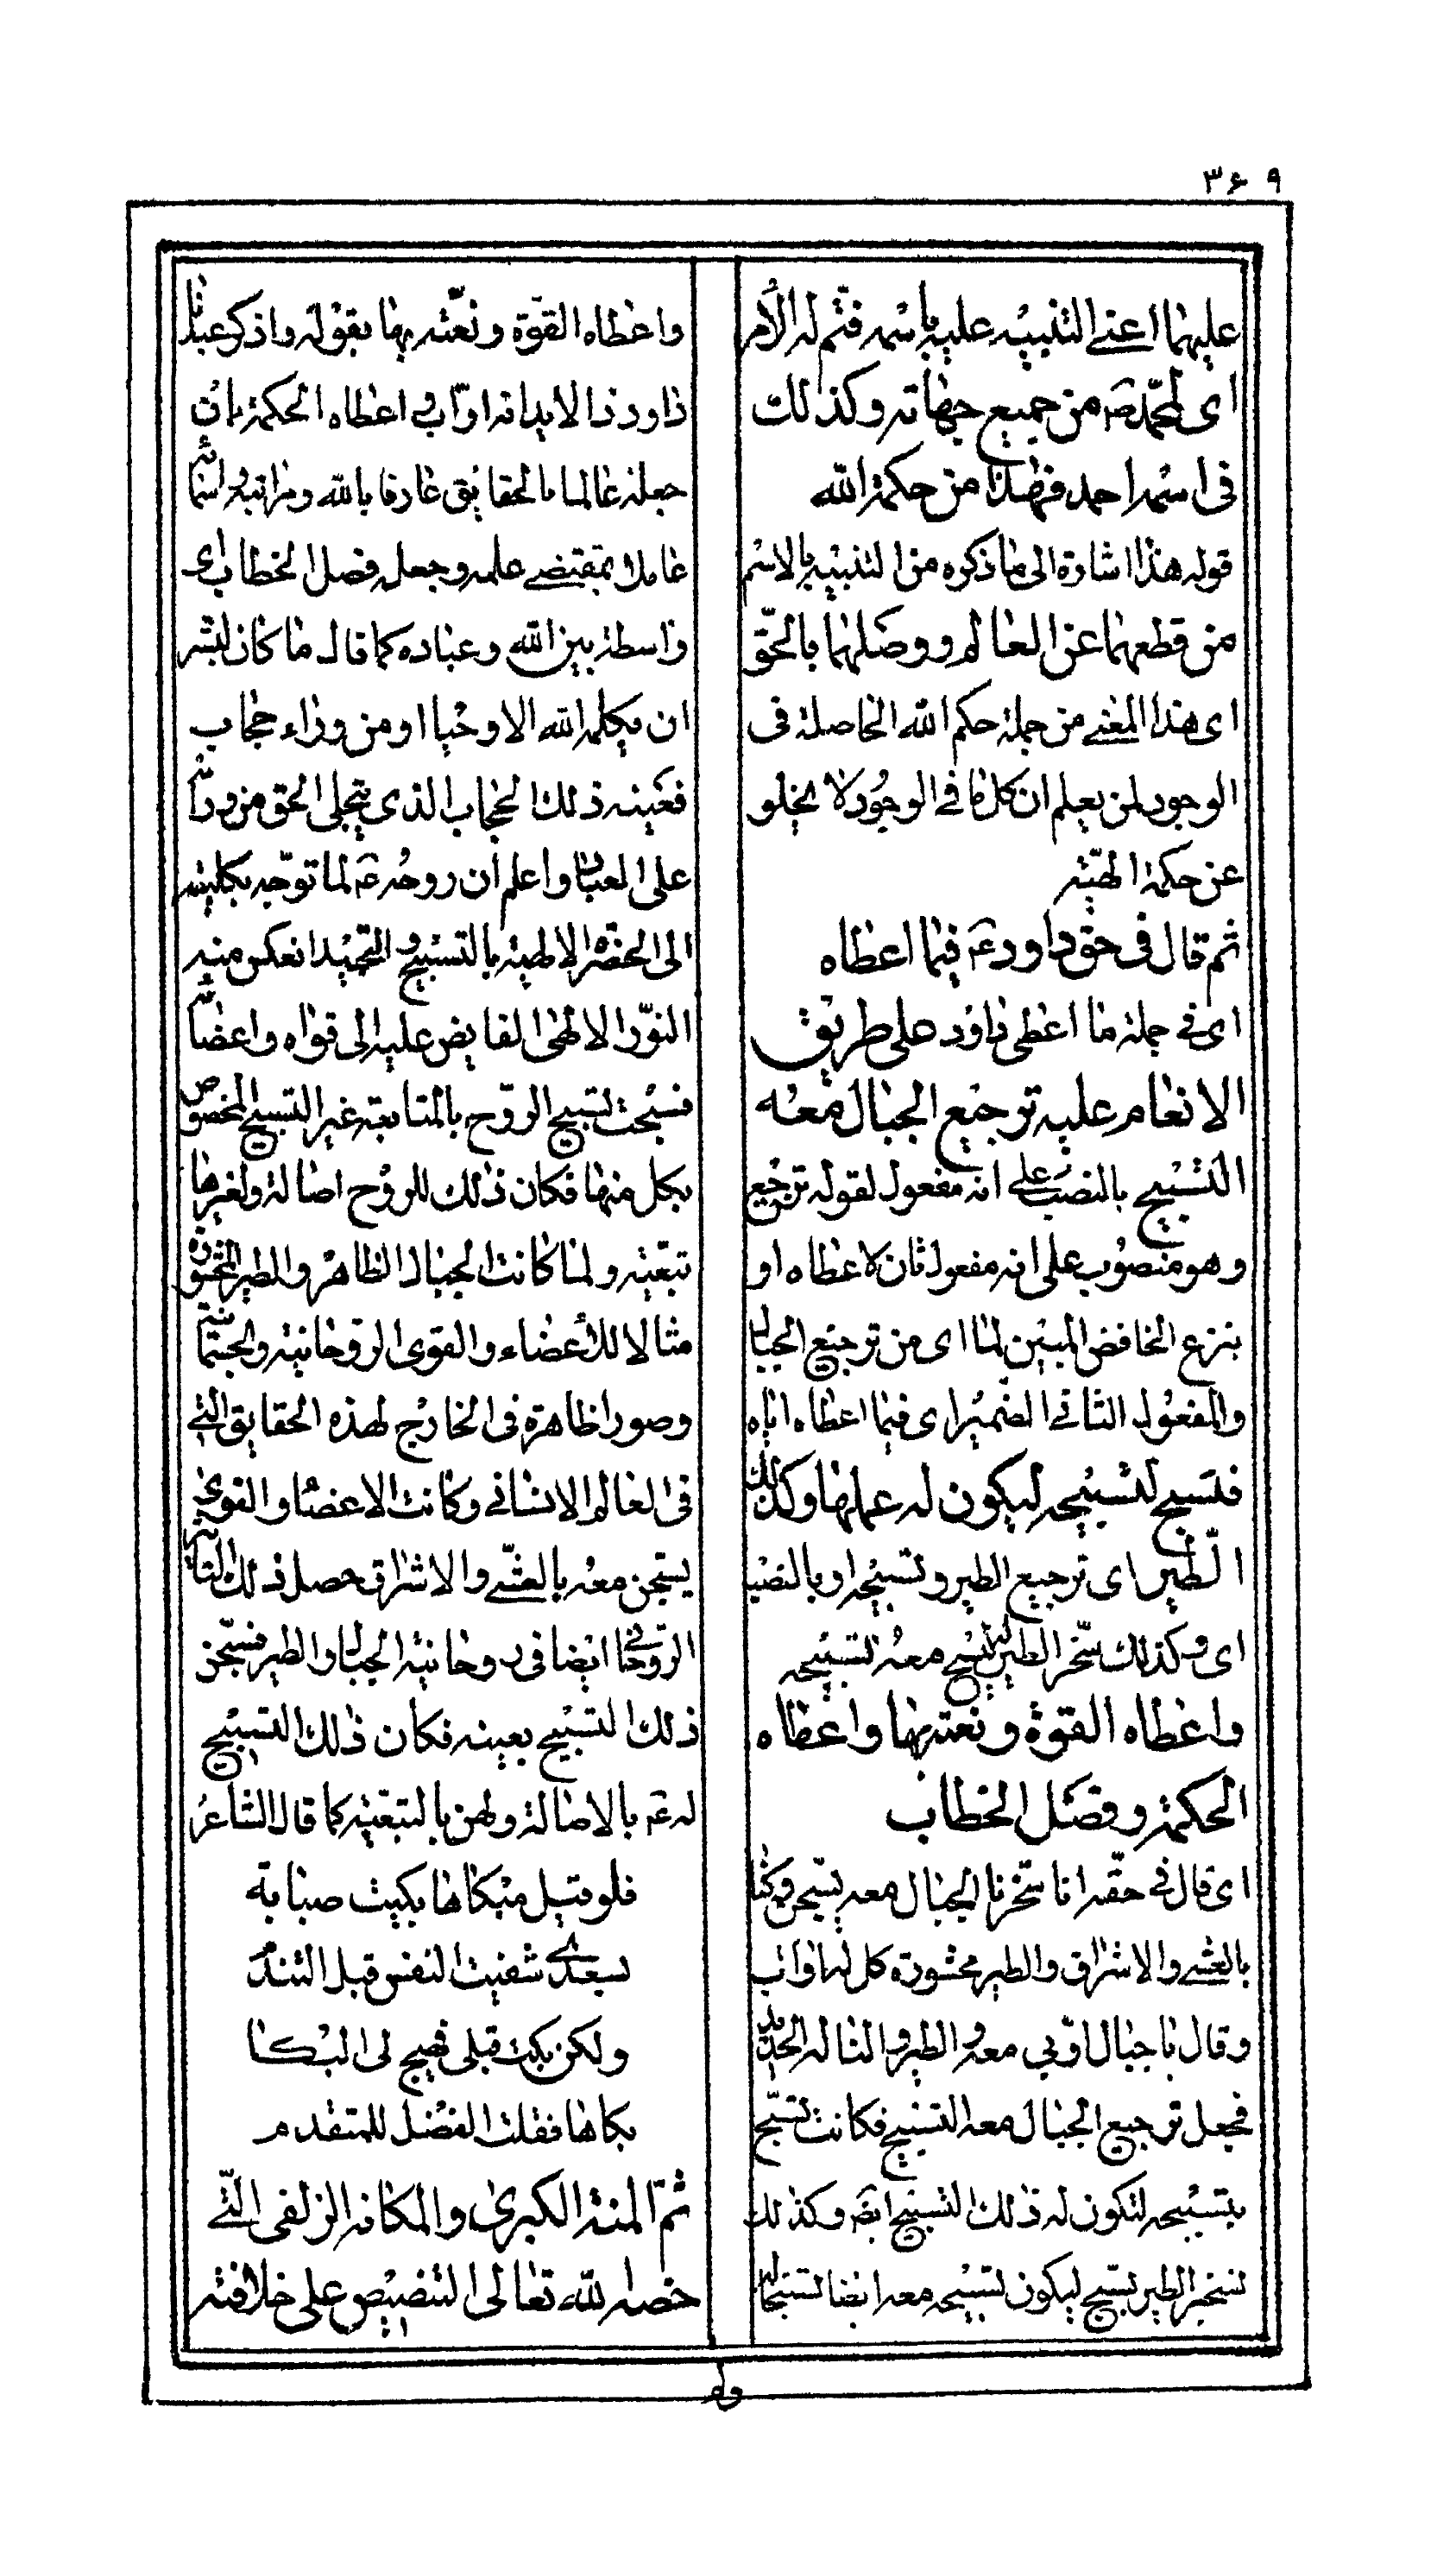 ۳۶۹
عليهما اعنى التنبيه عليه باسمه فتم له الأمر
اى لمحمّد ص من جميع جهاته وكذلك
فى اسمه احمد فهذا من حكمة الله
قوله هذا اشارة الى ما ذكره من التنبيه بالاسم
من قطعهما عن العالم ووصلهما بالحقّ
اى هذا المعنى من جملة حكم الله الحاصلة فى
الوجود لمن يعلم ان كل ما فى الوجود لا يخلو
عن حكمة الهيّة
ثم قال فى حق داود ع فيما اعطاه
اى فى جملة ما اعطى داود على طريق
الانعام عليه ترجيع الجبال معه
التسبيح بالنصب على انه مفعول لقوله ترجيع
وهو منصوب على انه مفعول ثان لاعطاه او
بنزع الخافض المبيّن لما اى من ترجيع الجبال
والمفعول الثانى الضمير اى فيما اعطاه اياه
فتسبح لتسبيحه ليكون له عملها وكذلك
الطّير اى ترجيع الطير وتسبيحه او بالنصب
اى وكذلك سخّر الطير ليسبح معه تسبيحه
واعطاه القوة ونعته بها واعطاه
الحكمة وفصل الخطاب
اى قال فى حقّه انا سخّرنا الجبال معه يسبّحن
بالعشى والاشراق والطير محشورة كل له اوّاب
وقال يا جبال اوّبى معه والطير والنا له الحديد
فجعل ترجيع الجبال معه التسبيح فكانت تسبّح
بتسبيحه لتكون له ذلك التسبيح ايضا وكذلك
تسخير الطير بتسبيح ليكون تسبيحه معه ايضا تسبيحا له
واعطاه القوّة ونعّته بها بقوله واذكر عبدنا
داود ذا الايد انه اوّاب واعطاه الحكمة بان
جعله عالما بالحقايق عارفا بالله ومراتبه واسمائه
عاملا بمقتضى علمه وجعله فصل الخطاب اى
واسطة بين الله وعباده كما قال ما كان لبشر
ان يكلمه الله الا وحيا او من وراء حجاب
فعينه ذلك الحجاب الذى يتجلى الحق من ورائه
على العباد واعلم ان روحه ع لما توجّه بكليته
الى الحضرة الالهية بالتسبيح والتحميد انعكس منه
النّور الالهى الفايض عليه الى قواه واعضائه
فسبّحت تسبيح الرّوح بالمتابعة غير التسبيح المخصوص
بكل منها فكان ذلك للروح اصالة ولغيرها
تبعّية ولما كانت الجبال الظاهرة والطير المحشورة
مثالا للأعضاء والقوى الروحانية والجسمانية
وصورا ظاهرة فى الخارج لهذه الحقايق التى
فى العالم الانسانى وكانت الاعضاء والقوى
يسبّحن معه بالعشى والاشراق حصل ذلك التأثير
الرّوحانى ايضا فى روحانية الجبال والطير فسبّحن
ذلك التسبيح بعينه فكان ذلك التسبيح
له ع بالاصالة ولهن بالتبعّية كما قال الشاعر
فلو قبل مبكاها بكيت صبابة
بسعدى شفيت النفس قبل التندّم
ولكن بكت قبلى فهيج لى البكا
بكاها فقلت الفضل للمتقدم
ثمّ المنة الكبرى والمكانة الزلفى التى
خصه الله تعالى التنصيص على خلافته